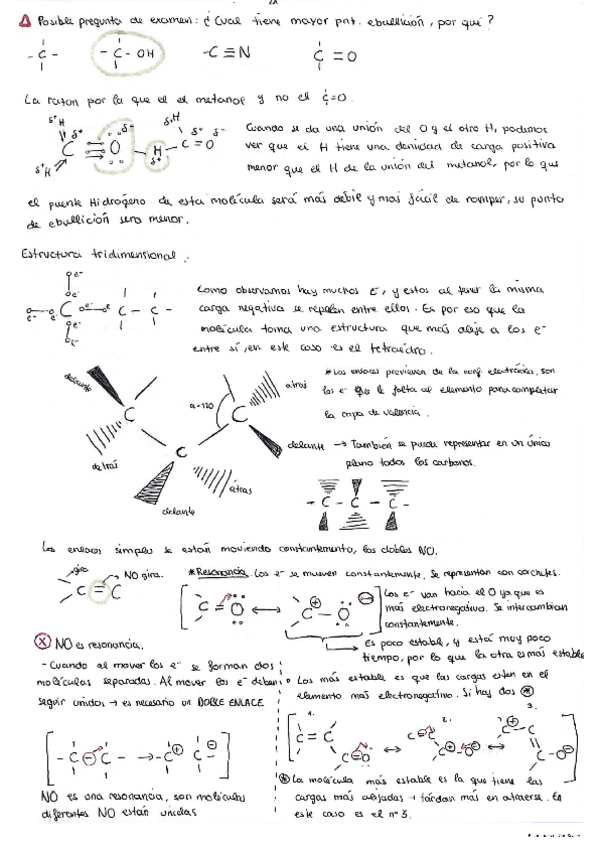 Posible pregunta de examen: ¿Cual tiene mayor pnt. ebullición, por qué?
- C -
- C - OH
- C ≡ N
C = O
La razon por la que el el metanol y no el C=O.
Cuando se da una unión del O y el otro H, podemos
ver que el H tiene una densidad de carga positiva
menor que el H de la unión del metanol, por lo que
el puente Hidrógeno de esta molécula será más débil y más fácil de romper, su punto
de ebullición sera menor.
Estructura tridimensional:
Como observamos hay muchos e⁻, y estos al tener la misma
carga negativa se repelen entre ellos. Es por eso que la
molécula toma una estructura que más aleje a los e⁻
entre sí, en este caso es el tetraedro.
* Los enlaces provienen de la conf. electrónica, son
los e⁻ que le falta al elemento para completar
la capa de valencia.
delante
detrás
α=120
atrás
delante → También se puede representar en un único
plano todos los carbonos.
atras
delante
- C - C - C -
Los enlaces simples se están moviendo constantemente, los dobles NO.
gira
NO gira.
C = C
*Resonancia. Los e⁻ se mueven constantemente. Se representan con corchetes.
[ C = O ↔ C - O ]
Los e⁻ van hacia el O ya que es
más electronegativo. Se intercambian
constantemente.
Es poco estable, y está muy poco
tiempo, por lo que la otra es más estable
X NO es resonancia.
- Cuando al mover los e⁻ se forman dos
moléculas separadas. Al mover los e⁻ deben
seguir unidos → es necesario un DOBLE ENLACE
Los más estable es que las cargas esten en el
elemento más electronegativo. Si hay dos *
1.
2.
3.
* La molécula más estable es la que tiene las
cargas más alejadas → tardan más en atraerse. En
este caso es el nº3.
NO es una resonancia, son moléculas
diferentes NO están unidas